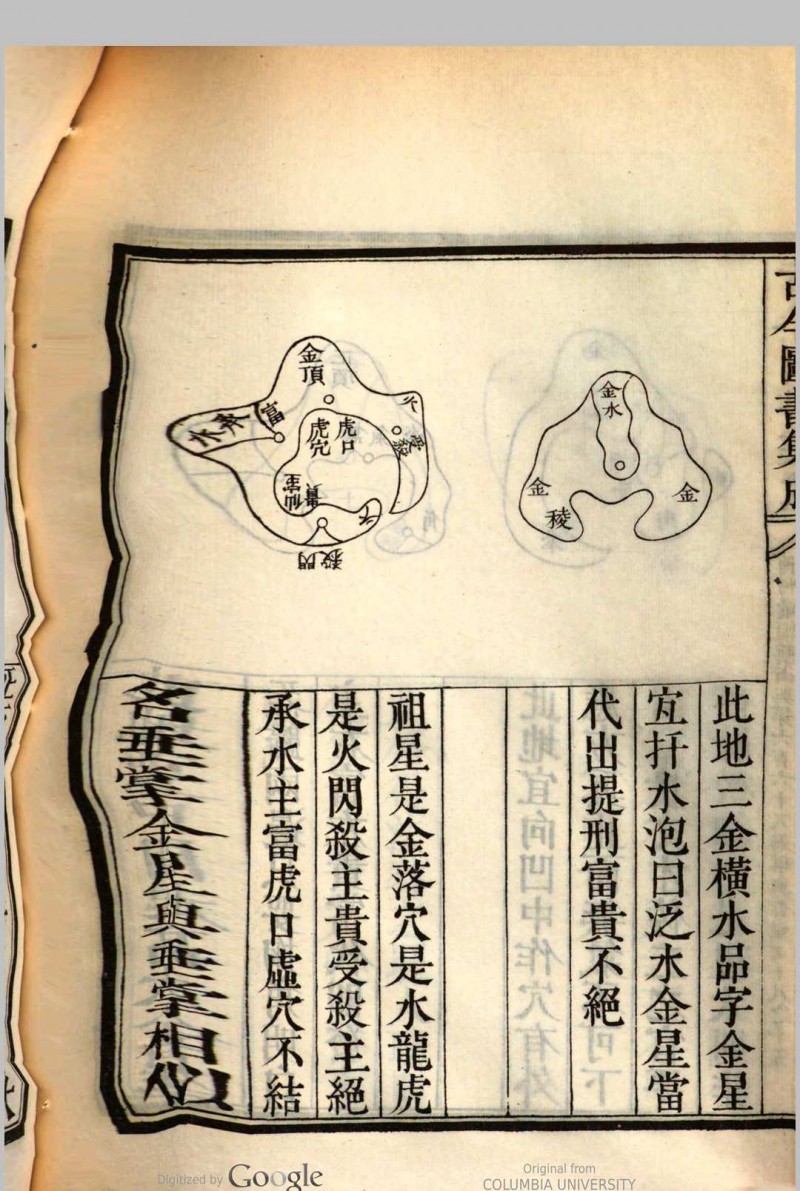 古今圖書集成
金水
金
金
稜
金頂
虎口
虎穴
富
承水
火
受殺
仙宫
貴
火
閃殺
此地三金橫水品字金星
宐扦水泡曰泛水金星當
代出提刑富貴不絕
祖星是金落穴是水龍虎
是火閃殺主貴受殺主絕
承水主富虎口虛穴不結
名垂掌金星與垂掌相似
Digitized by Google
Original from
COLUMBIA UNIVERSITY